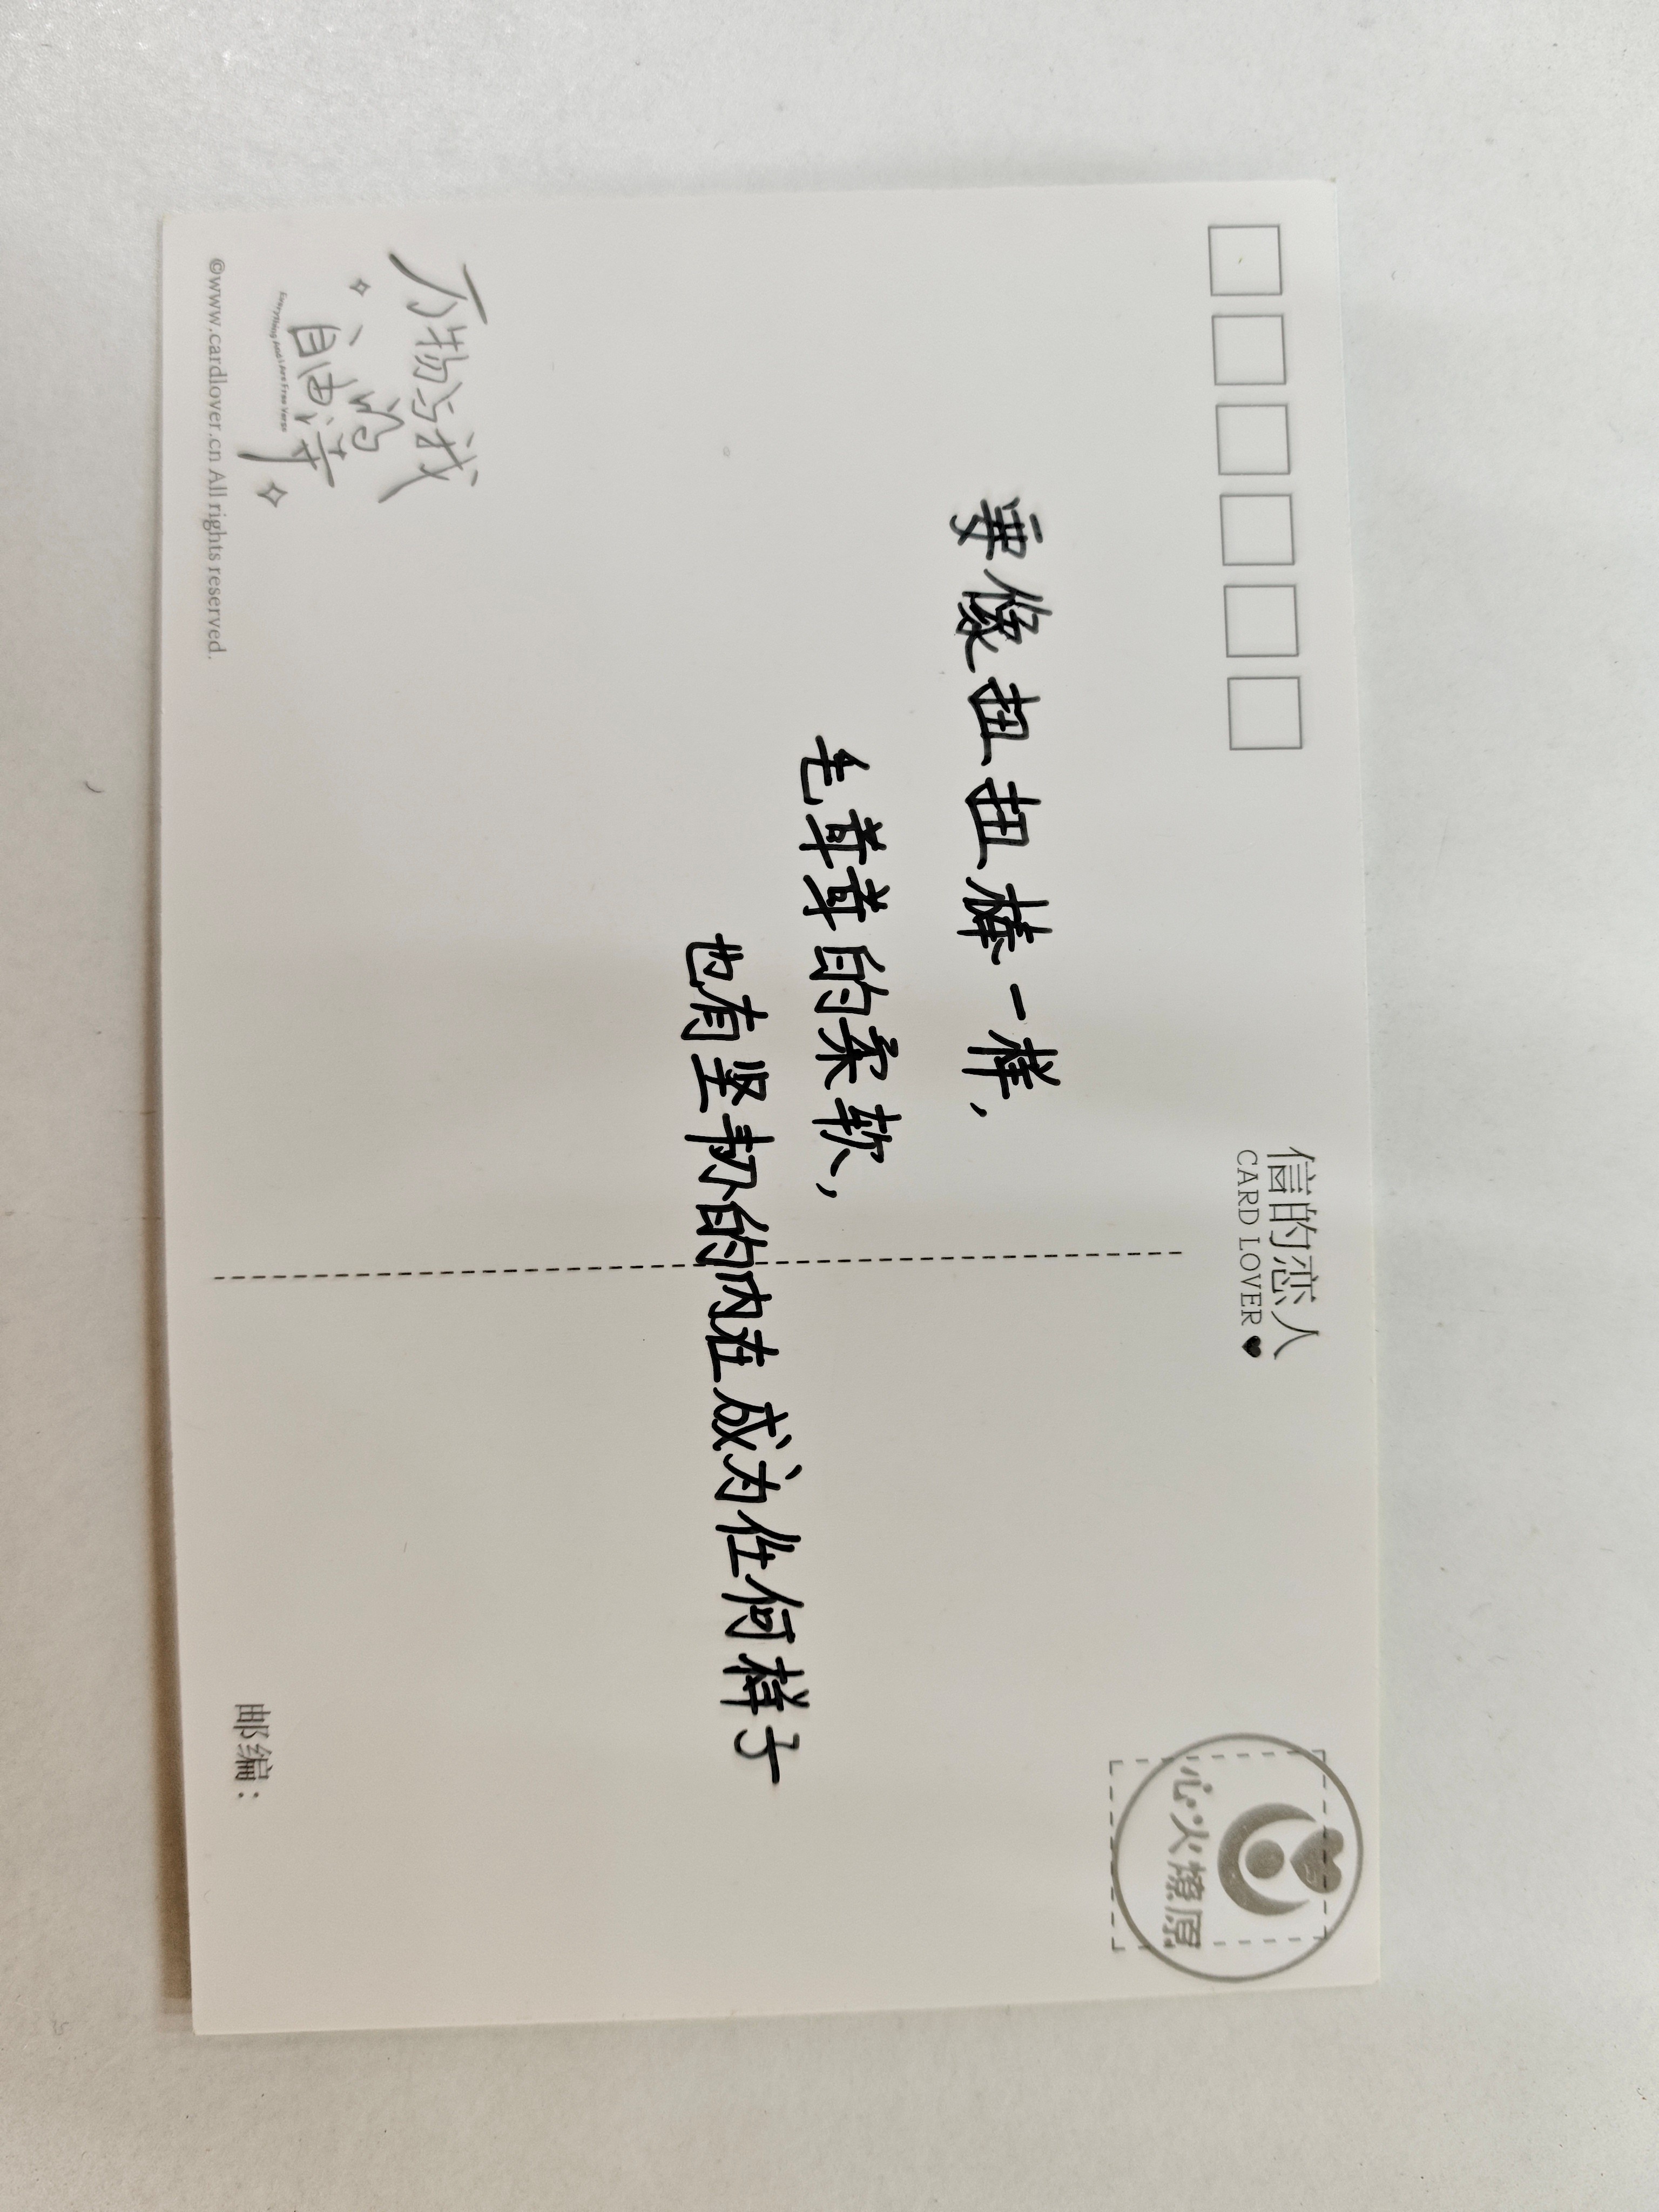 信的恋人
CARD LOVER
心火燎原
要像扭扭棒一样，
毛茸茸的柔软，
也有坚韧的内在成为任何样子
万物与我
皆为
自由诗
Everything And I Are Free Verse
©www.cardlover.cn All rights reserved.
邮编：